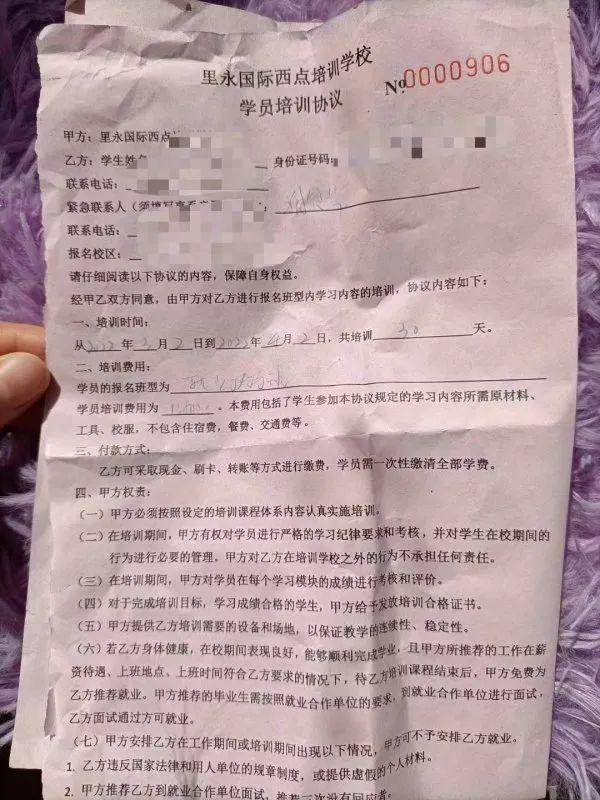 里永国际西点培训学校
№0000906
学员培训协议
甲方：里永国际西点
乙方：学生姓名 身份证号码：
联系电话：
紧急联系人（须填写直系
联系电话：
报名校区：
请仔细阅读以下协议的内容，保障自身权益。
经甲乙双方同意，由甲方对乙方进行报名班型内学习内容的培训，协议内容如下：
一、培训时间：
从2022年3月2日到2022年4月2日，共培训 30 天。
二、培训费用：
学员的报名班型为
学员培训费用为 。本费用包括了学生参加本协议规定的学习内容所需原材料、
工具、校服，不包含住宿费，餐费、交通费等。
三、付款方式：
乙方可采取现金、刷卡、转账等方式进行缴费，学员需一次性缴清全部学费。
四、甲方权责：
（一）甲方必须按照设定的培训课程体系内容认真实施培训。
（二）在培训期间，甲方有权对学员进行严格的学习纪律要求和考核，并对学生在校期间的
行为进行必要的管理。甲方对乙方在培训学校之外的行为不承担任何责任。
（三）在培训期间，甲方对学员在每个学习模块的成绩进行考核和评价。
（四）对于完成培训目标，学习成绩合格的学生，甲方给予发放培训合格证书。
（五）甲方提供乙方培训需要的设备和场地，以保证教学的连续性、稳定性。
（六）若乙方身体健康，在校期间表现良好，能够顺利完成学业，且甲方所推荐的工作在薪
资待遇、上班地点、上班时间符合乙方要求的情况下，待乙方培训课程结束后，甲方免费为
乙方推荐就业。甲方推荐的毕业生需按照就业合作单位的要求，到就业合作单位进行面试，
乙方面试通过方可就业。
（七）甲方安排乙方在工作期间或培训期间出现以下情况，甲方可不予安排乙方就业。
1. 乙方违反国家法律和用人单位的规章制度，或提供虚假的个人材料。
2. 甲方推荐乙方到就业合作单位面试，推荐三次没有回应者。